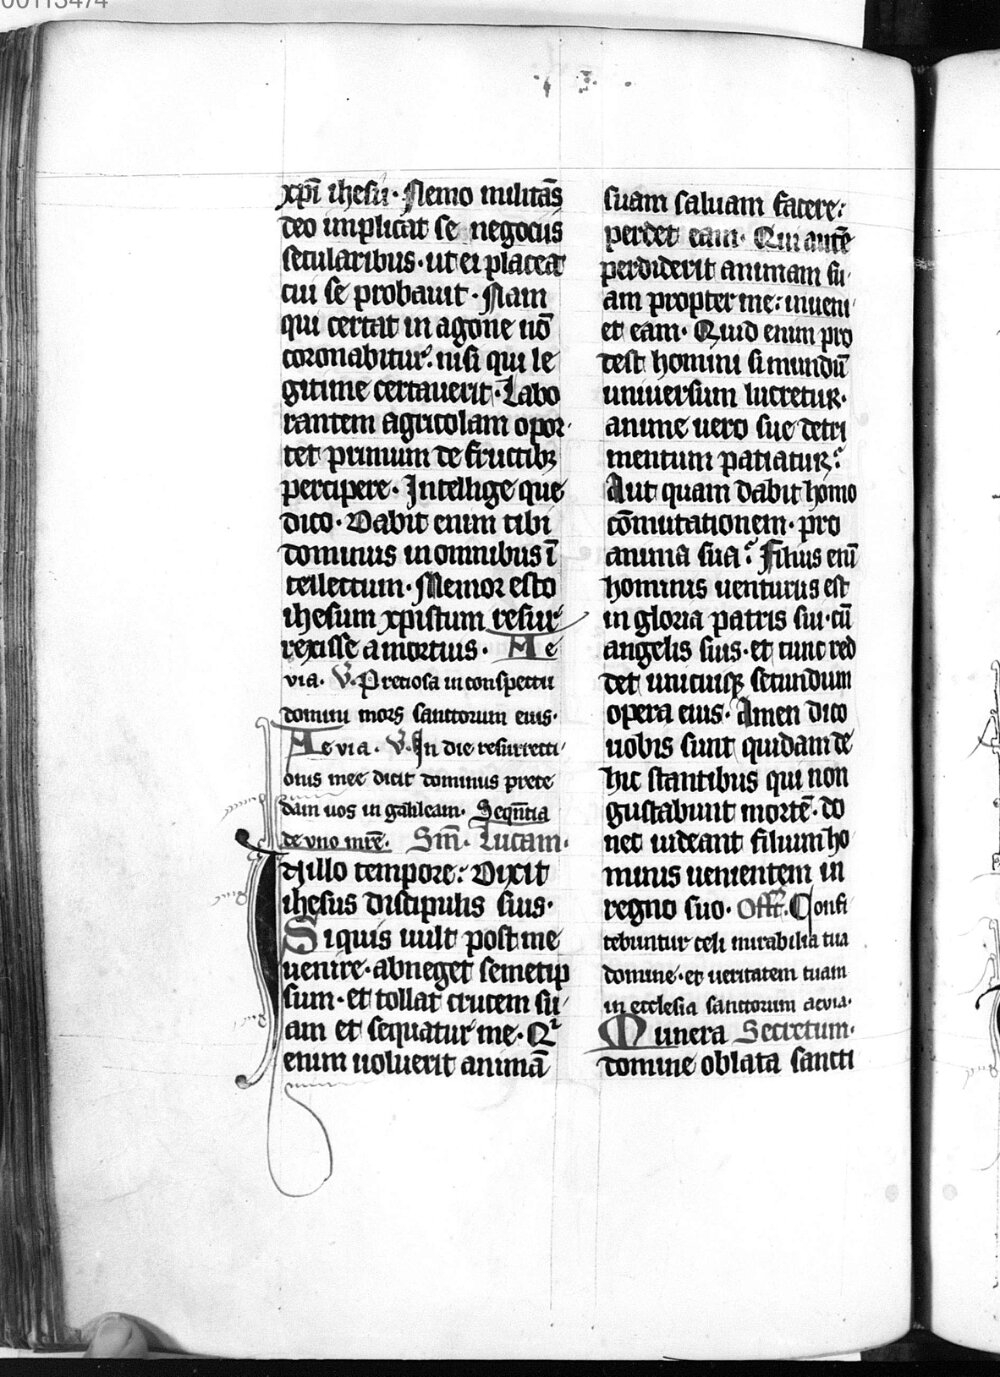 00113474
xp̄i ihesu · Nemo militās
deo implicat se negociis
secularibus · ut ei placeat
cui se probauit · Nam
qui certat in agone nō
coronabitur : nisi qui le
gitime certauerit · Labo
rantem agricolam opor
tet primum de fructibꝫ
percipere · Intellige que
dico · Dabit enim tibi
dominus in omnibus ī
tellectum · Memor esto
ihesum xpistum resur
rexisse a mortuis · Ae
via · V̸ · Preciosa in conspectu
domini mors sanctorum eius ·
Aevia · V̸ · In die resurrecti
onis mee dicit dominus prece
dam uos in galileam · Seqn̄tia
de vno mr̄e · Sm̄ · Lucam ·
In illo tempore : Dixit
ihesus discipulis suis ·
Si quis uult post me
uenire · abneget semetip
sum · et tollat crucem su
am et sequatur me · Qi
enim uoluerit animā
suam saluam facere :
perdet eam · Qui autē
perdiderit animam su
am propter me : inueni
et eam · Quid enim pro
dest homini si mundū
uniuersum lucretur ·
anime uero sue detri
mentum patiatur :
Aut quam dabit homo
cōmutationem · pro
anima sua : Filius enī
hominis uenturus est
in gloria patris sui · cū
angelis suis · et tunc red
det unicuiqꝫ secundum
opera eius · Amen dico
uobis sunt quidam de
hic stantibus qui non
gustabunt mortē · do
nec uideant filium ho
minis uenientem in
regno suo · Offr̄ · Confi
tebuntur celi mirabilia tua
domine · et ueritatem tuam
in ecclesia sanctorum aevia ·
Munera Secretum ·
domine oblata sancti